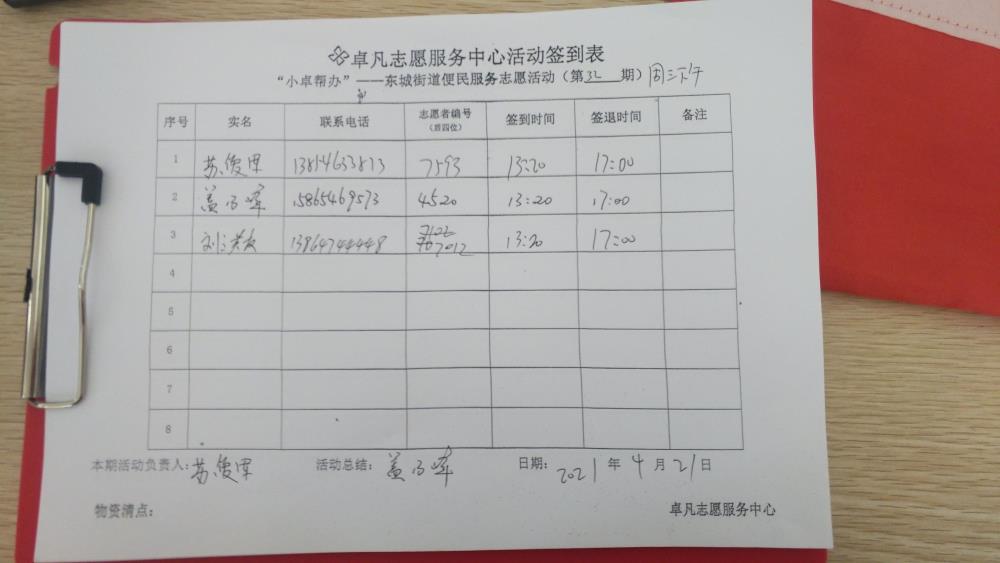 卓凡志愿服务中心活动签到表
“小卓帮办”——东城街道便民服务志愿活动（第32期）周三下午
序号 实名 联系电话 志愿者编号（后四位） 签到时间 签退时间 备注
1 苏俊甲 13814633813 7593 13:20 17:00
2 盖乃峰 15865469573 4520 13:20 17:00
3 刘洪 13864744448 7012 13:20 17:00
4
5
6
7
8
本期活动负责人：苏俊甲 活动总结：盖乃峰 日期：2021年4月21日
物资清点： 卓凡志愿服务中心